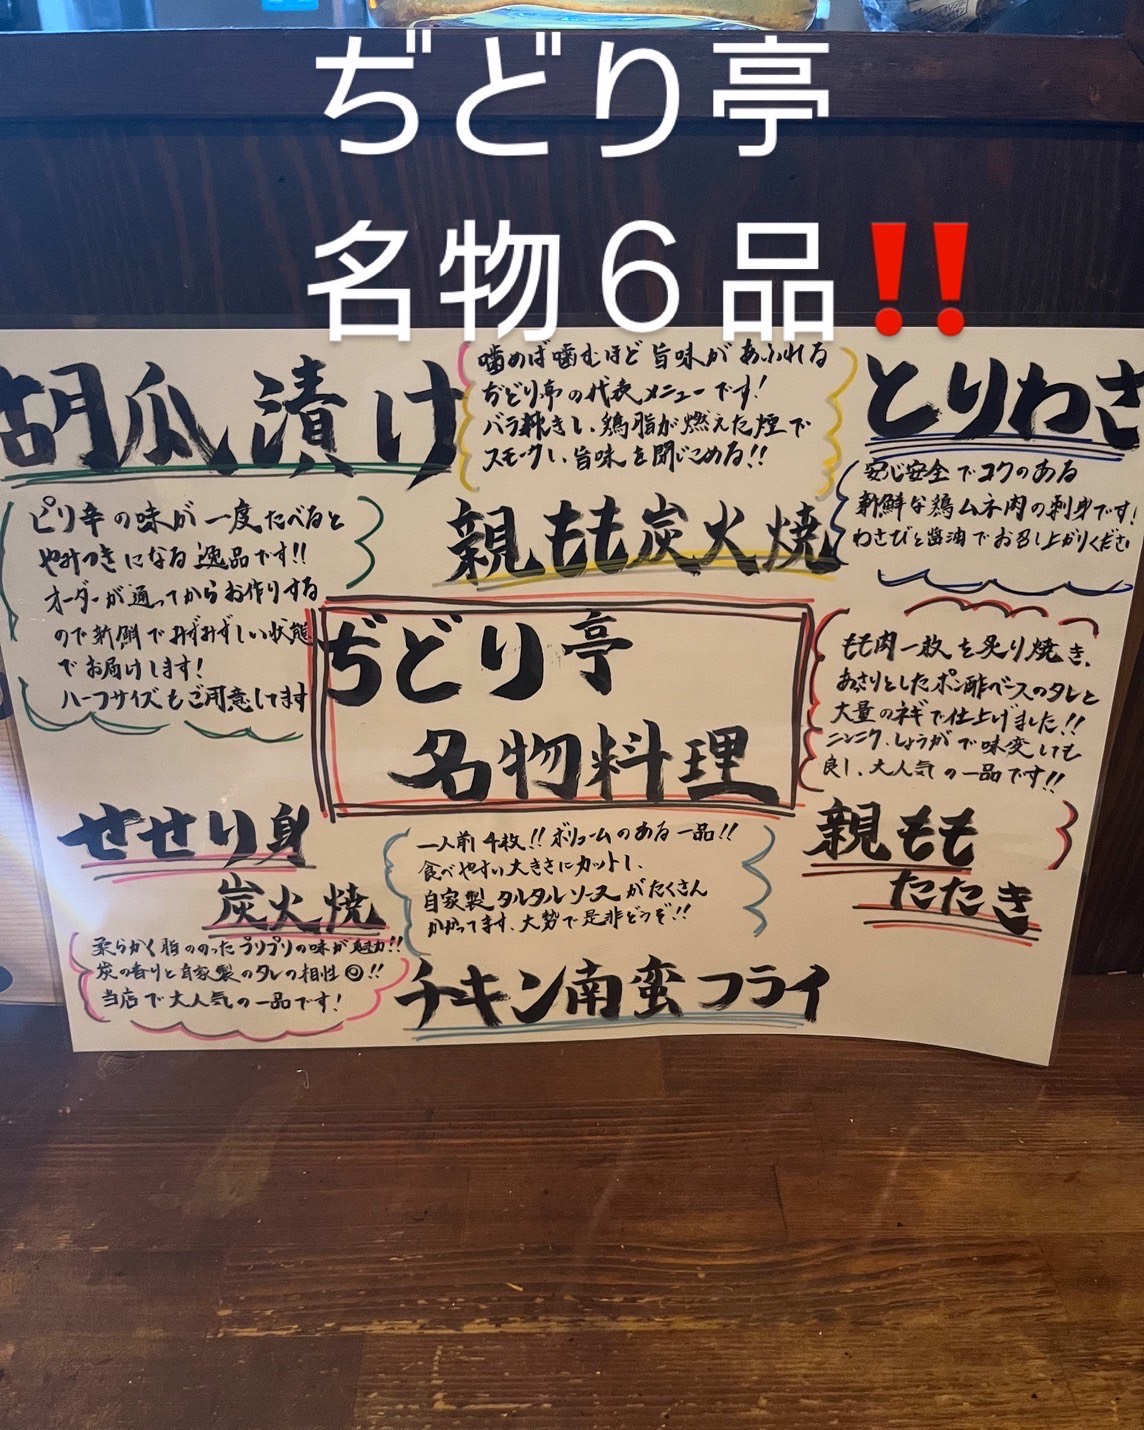 ぢどり亭
名物６品‼
胡瓜漬け
ピリ辛の味が一度たべると
やみつきになる逸品です!!
オーダーが通ってからお作りする
ので新鮮でみずみずしい状態
でお届けします!
ハーフサイズもご用意してます
噛めば噛むほど旨味があふれる
ぢどり亭の代表メニューです!
バラ焼きし、鶏脂が燃えた煙で
スモークし、旨味を閉じこめる!!
親もも炭火焼
とりわさ
安心安全でコクのある
新鮮な鶏ムネ肉の刺身です!
わさびと醤油でお召し上がりくださ
ぢどり亭
名物料理
もも肉一枚を炙り焼き、
あっさりとしたポン酢ベースのタレと
大量のネギで仕上げました!!
ニンニク、しょうがで味変しても
良し、大人気の一品です!!
親もも
たたき
せせり身
炭火焼
柔らかく脂ののったプリプリの味が魅力!!
炭の香りと自家製のタレの相性◎!!
当店で大人気の一品です!
一人前4枚!!ボリュームのある一品!!
食べやすい大きさにカットし、
自家製タルタルソースがたくさん
かかってます、大勢で是非どうぞ!!
チキン南蛮フライ